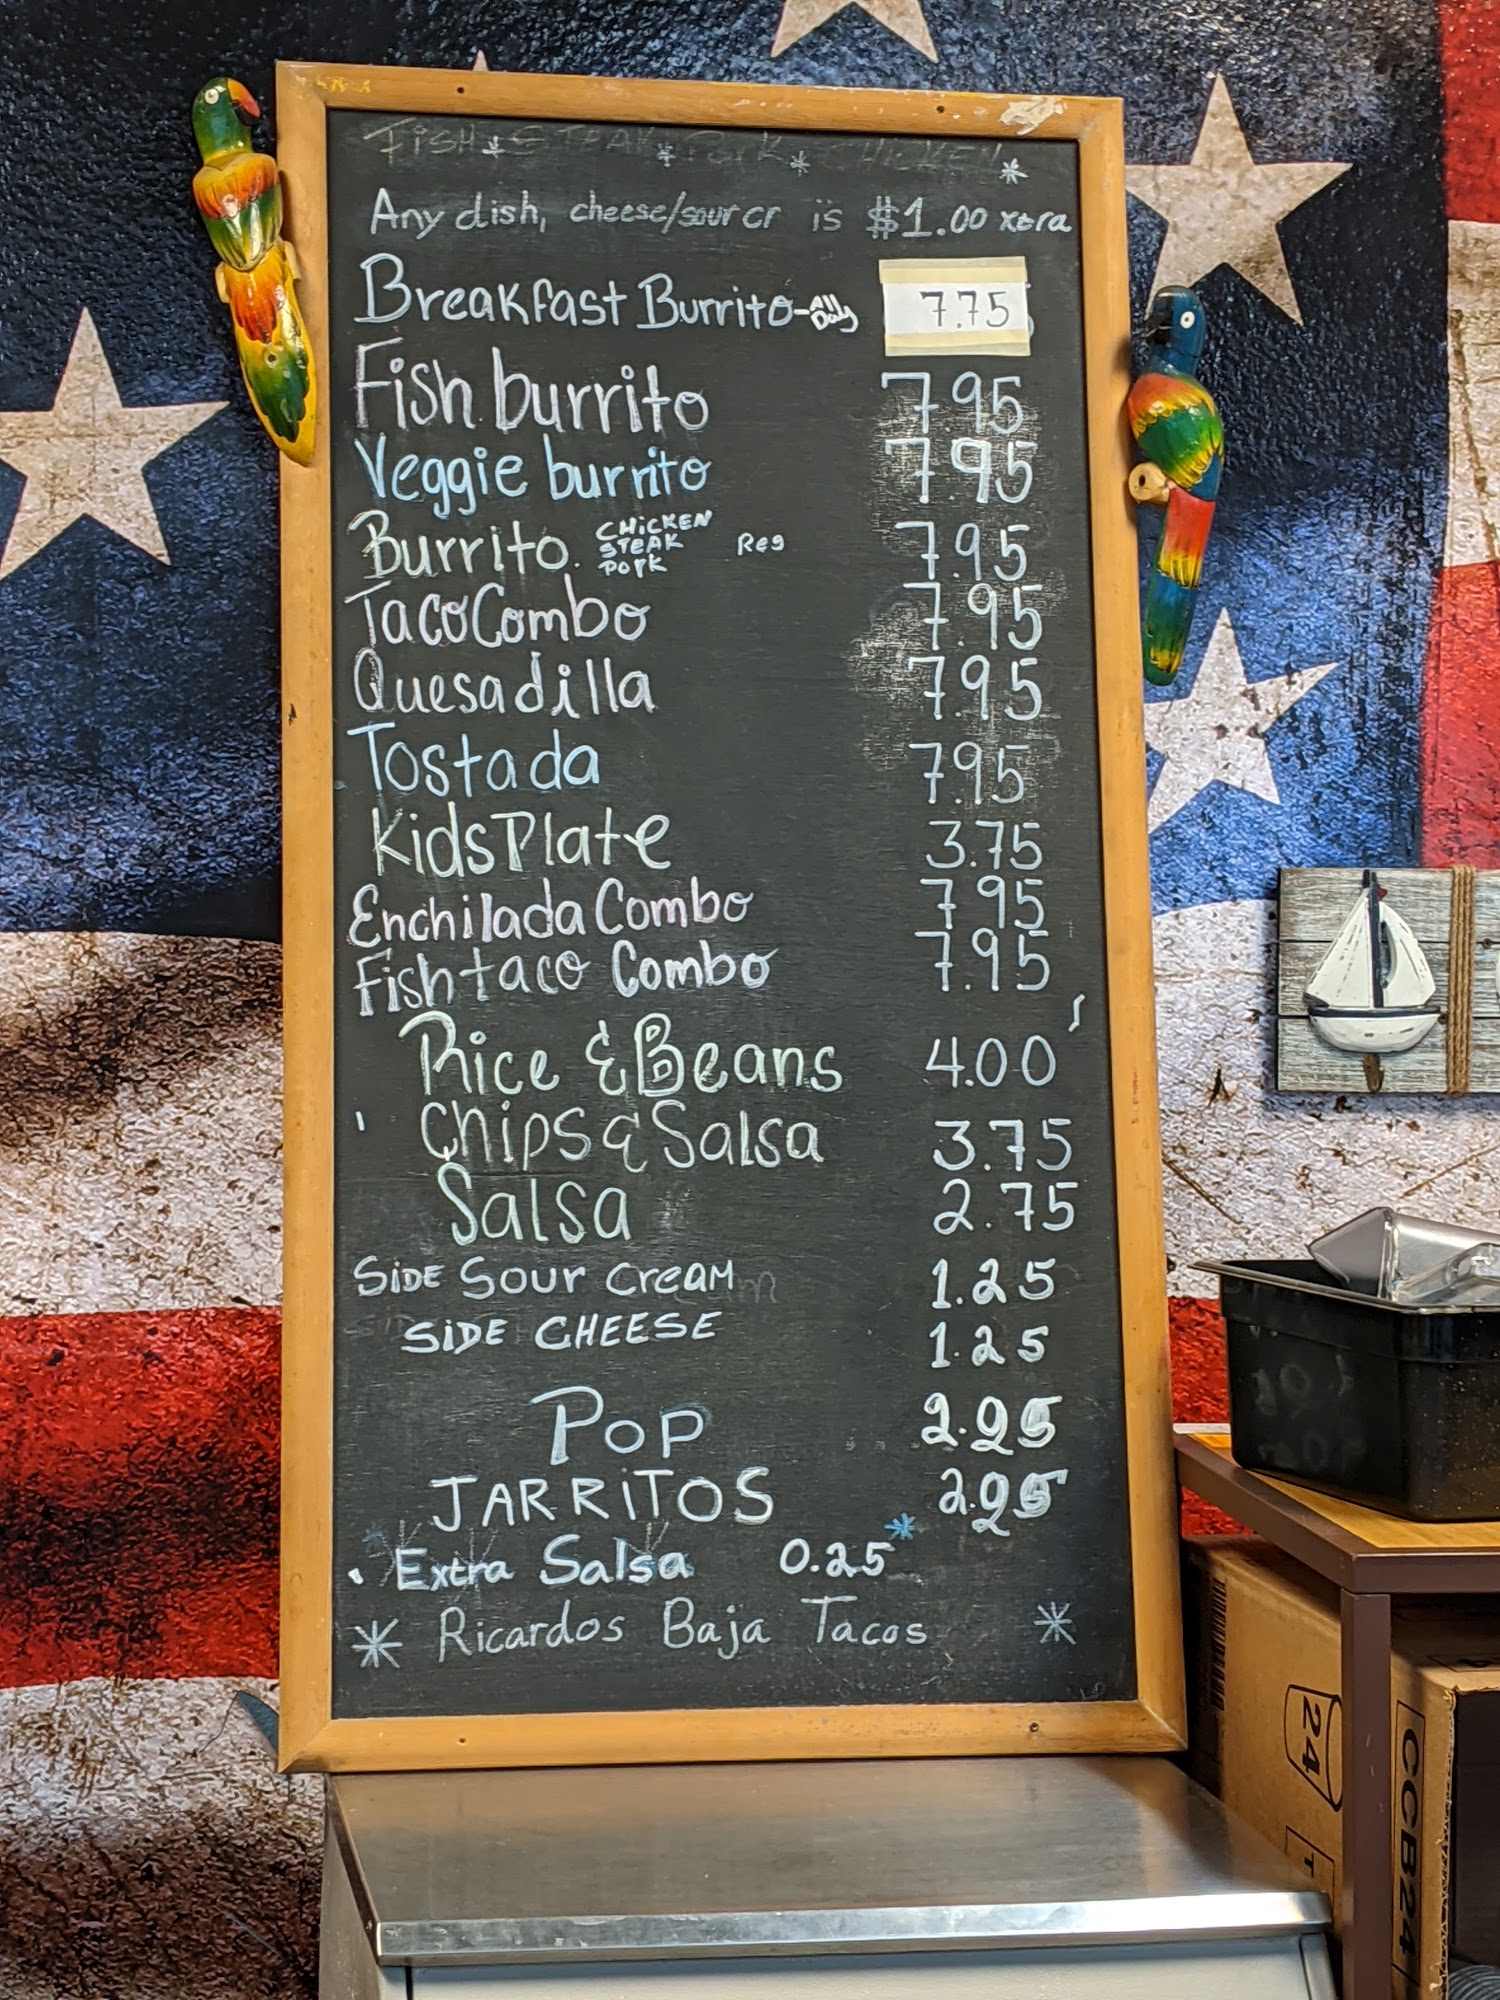 Fish * Steak * Pork * Chicken *
Any dish, cheese/sour cr is $1.00 xtra
Breakfast Burrito - All Day 7.75
Fish burrito 7.95
Veggie burrito 7.95
Burrito. CHICKEN STEAK Pork Reg 7.95
Taco Combo 7.95
Quesadilla 7.95
Tostada 7.95
Kids Plate 3.75
Enchilada Combo 7.95
Fish taco Combo 7.95
Rice & Beans 4.00
Chips & Salsa 3.75
Salsa 2.75
SiDE SOUR CREAM 1.25
SiDE CHEESE 1.25
POP 2.25
JARRiTOS 2.25
Extra Salsa 0.25*
* Ricardos Baja Tacos *
24
CCB24